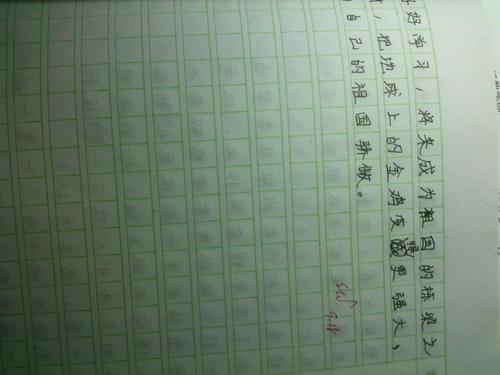 好好学习，将来成为祖国的栋梁之
，把地球上的金鸡变得更强大，
自己的祖国骄做。
9.18